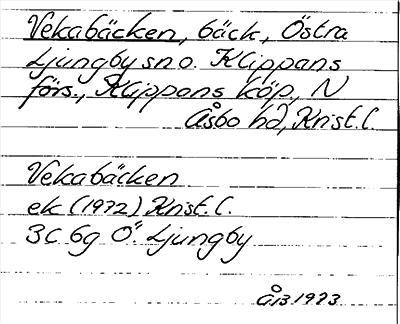 Vekabäcken, bäck, Östra
Ljungby sn o. Klippans
förs., Klippans köp., N
Åsbo hd, Krist. l.
Vekabäcken
ek (1972) Krist. l.
3C 6g Ö. Ljungby
ÅB 1973